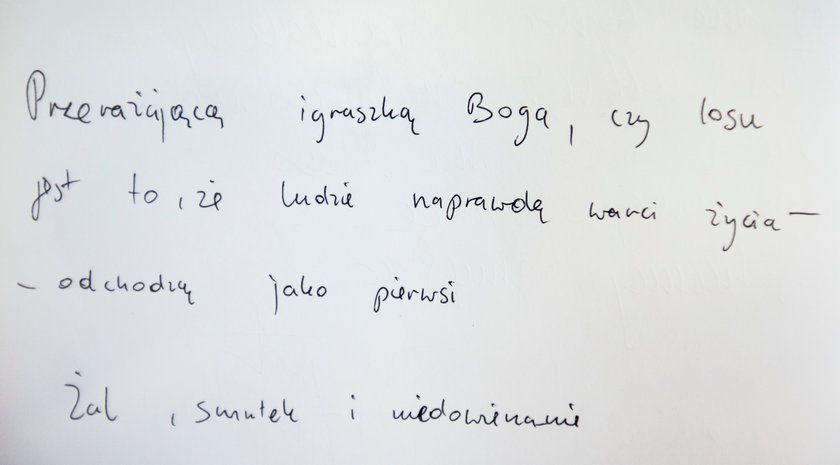 Przerażającą igraszką Boga, czy losu
jest to, że ludzie naprawdę warci życia –
– odchodzą jako pierwsi
Żal, smutek i niedowierzanie